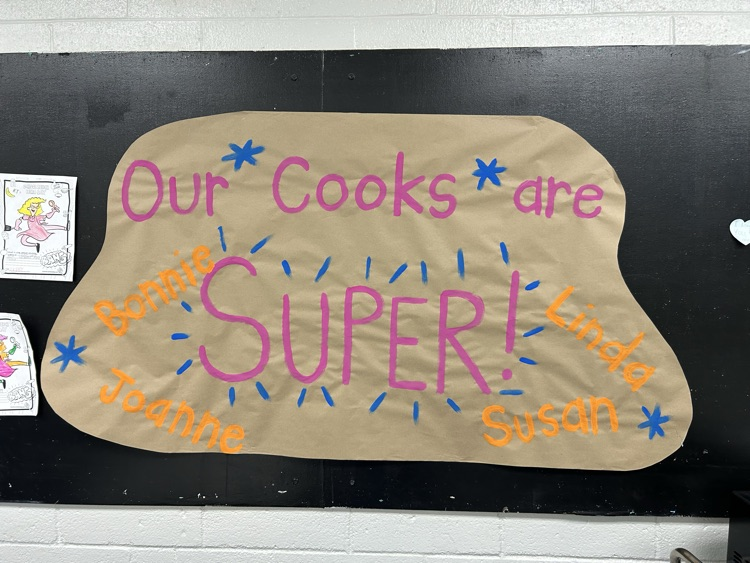 Our Cooks are
Bonnie
SUPER!
Linda
Joanne
Susan